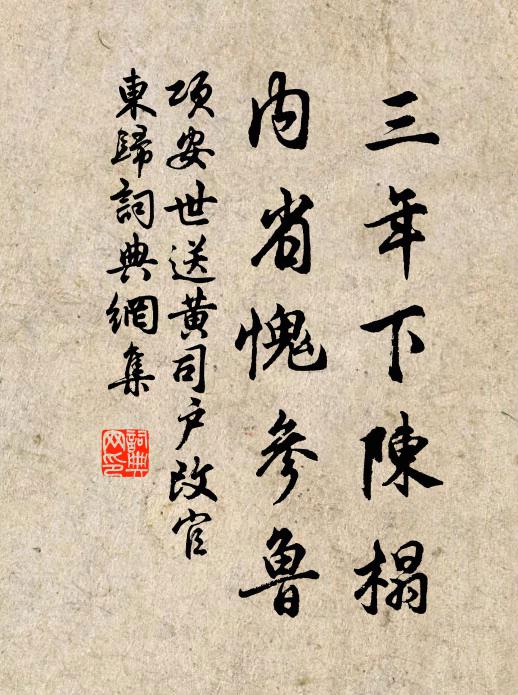 三年下陳榻
内省愧參魯
項安世送黄司户改官
東歸詞典網集
詞典網印